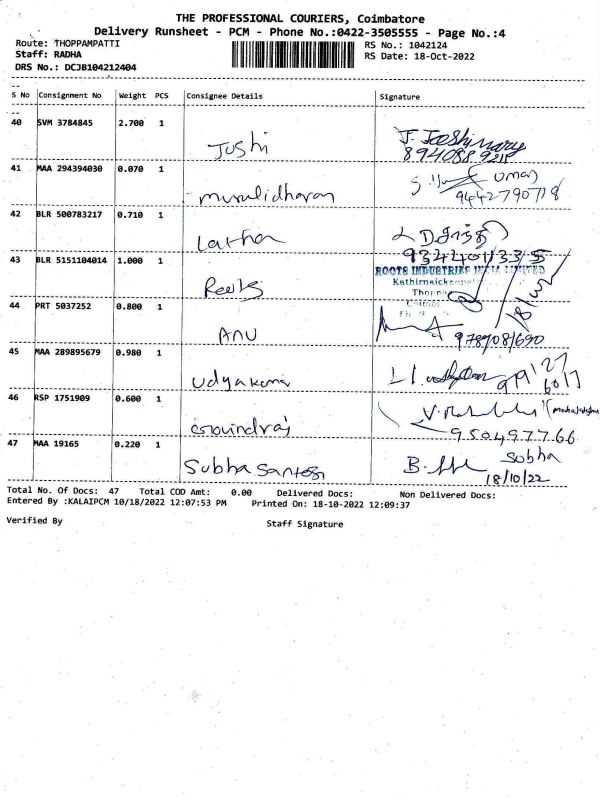 THE PROFESSIONAL COURIERS, Coimbatore
Delivery Runsheet - PCM - Phone No.:0422-3505555 - Page No.:4
Route: THOPPAMPATTI
Staff: RADHA
DRS No.: DCJB104212404
RS No.: 1042124
RS Date: 18-Oct-2022
S No Consignment No Weight PCS Consignee Details Signature
40 SVM 3784845 2.700 1 Joshi
41 MAA 294394030 0.070 1 Muralidharan
9442790718
42 BLR 500783217 0.710 1 Latha
43 BLR 5151104014 1.000 1
ROOTS INDUSTRIES INDIA LIMITED
44 PRT 5037252 0.800 1 ANU
45 MAA 289895679 0.980 1 Udyakumar
46 RSP 1751909 0.600 1 Govindraj
9504977766
47 MAA 19165 0.220 1 Subha Santosh
Sobha
18/10/22
Total No. Of Docs: 47 Total COD Amt: 0.00 Delivered Docs: Non Delivered Docs:
Entered By :KALAIPCM 10/18/2022 12:07:53 PM Printed On: 18-10-2022 12:09:37
Verified By Staff Signature